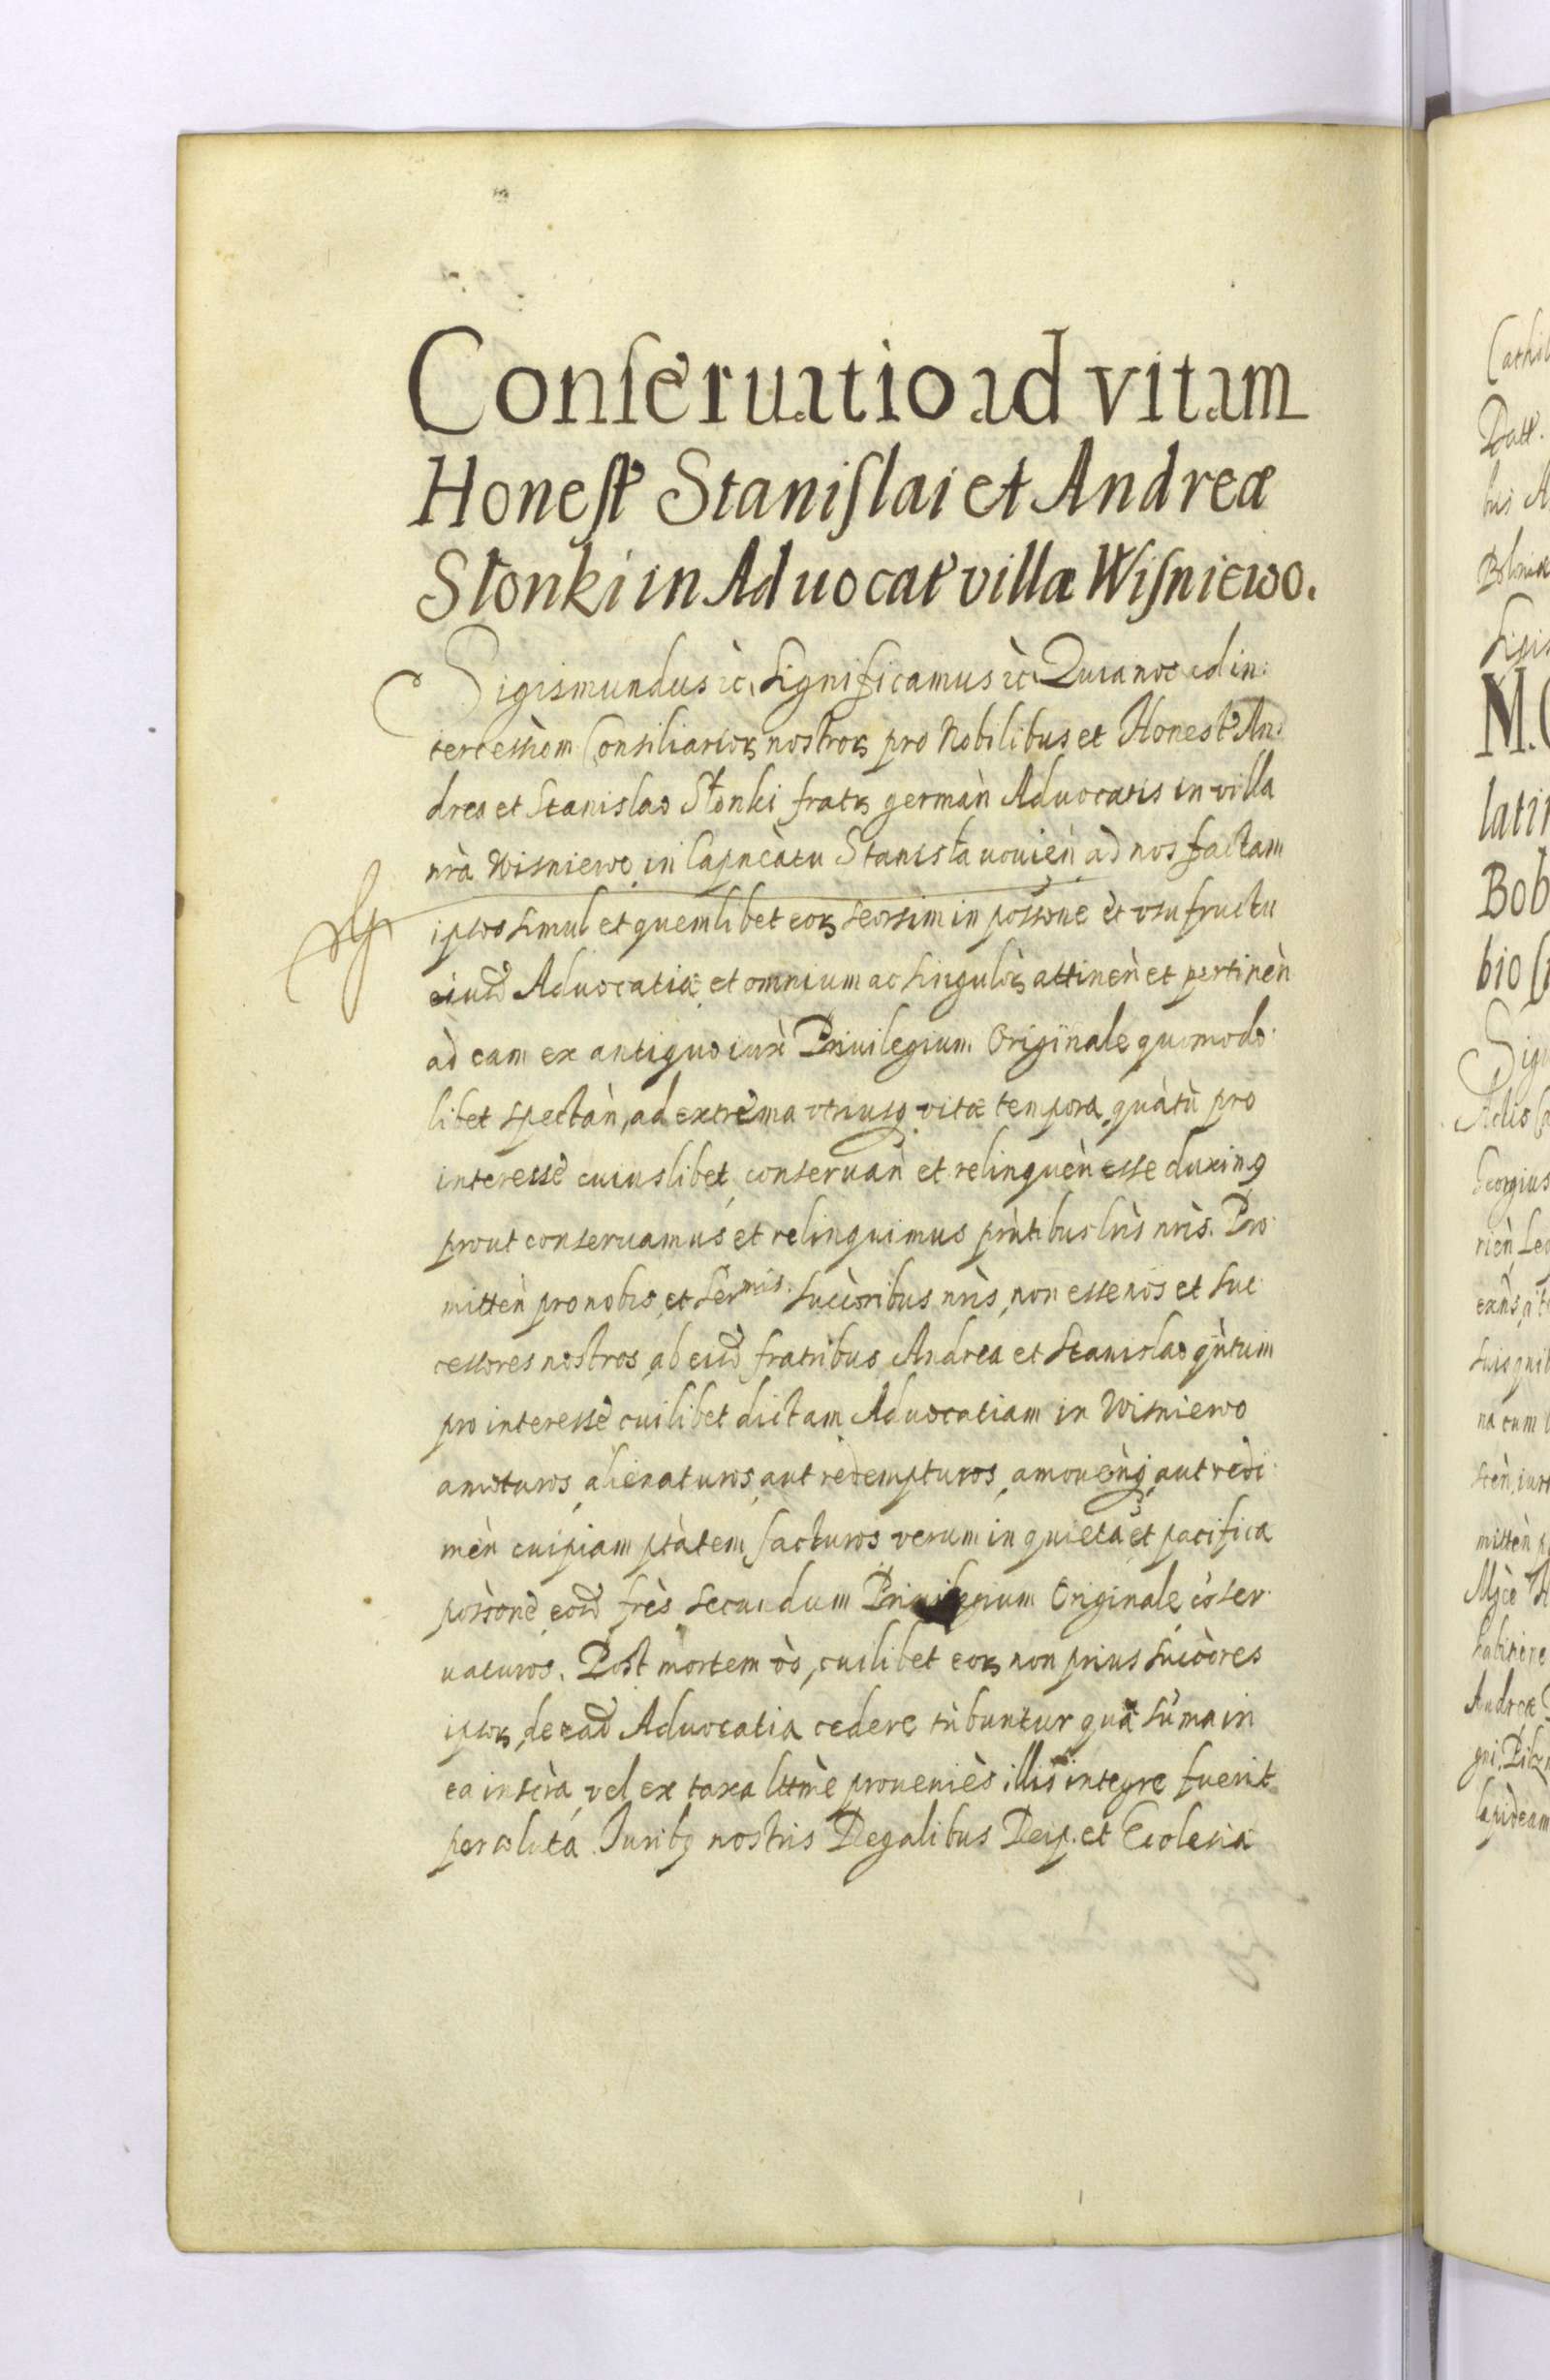 Conſeruatio ad vitam
Honeſt Staniſlai et Andreæ
Słonki in Aduocat villæ Wiſniewo.
Sigismundus etc. Significamus etc. Quia nos ad in:
tercessiom Consiliarior nostror pro Nobilibus et Honest An:
drea et Stanislao Słonki fratr germàn Aduocatis in villa
nrà Wisniewo in Capneàtu Stanislauouien ad nos factam
ipsos simul et quemlibet eor seorsim in possone et vsufructu
eiusd Aduocatiæ et omnium ac singulor attinèn et pertinèn
ad eam ex antiquo iurè Priuilegium Originale quomodo:
libet spectàn, ad extrema vtriusq vitæ tempora, quàtù pro
interesse cuiuslibet, conseruàn et relinquèn esse duximq
prout conseruamus et relinquimus prùtibus lris nris. Pro:
mittèn pro nobis, et Sermis. Succoribus nris, non esse nos et suc:
cessores nostros, ab eisd fratribus Andrea et Stanislao qùtum
pro interesse cuilibet dictam Aduocatiam in Wisniewo
amoturos, alienaturos, aut redempturos, amouènq, aut redi:
mèn cuipiam ptàtem facturos verum in quieta et pacifica
possonè eosd frès secundum Priuilegium Originale, coser:
uaturos. Post mortem vò, cuilibet eor non prius succòres
ipsor, de ead Aduocatia cedere tnbuntur quā sūma in
ea inscra, vel ex taxa lttmè proueniès illis integre fuerit
persoluta. Juribq nostris Regalibus Reip. et Ecclesiæ